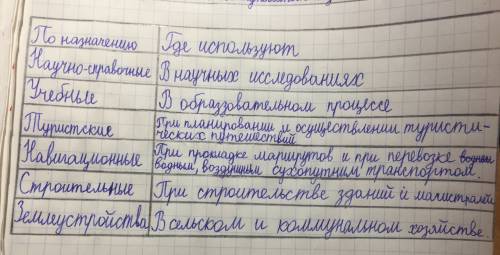 По назначению Где используют
Научно-справочные В научных исследованиях
Учебные В образзовательном процессе
Туристские При планировании и осуществлении туристи-
ческих путешествий
Навигационные При прокладке маршрутов и при перевозке водным
водным, воздушным сухопутним транспортом.
Строительные При строительстве зданий и магистралей
Землеустройства В сельском и коммунальном хозяйстве